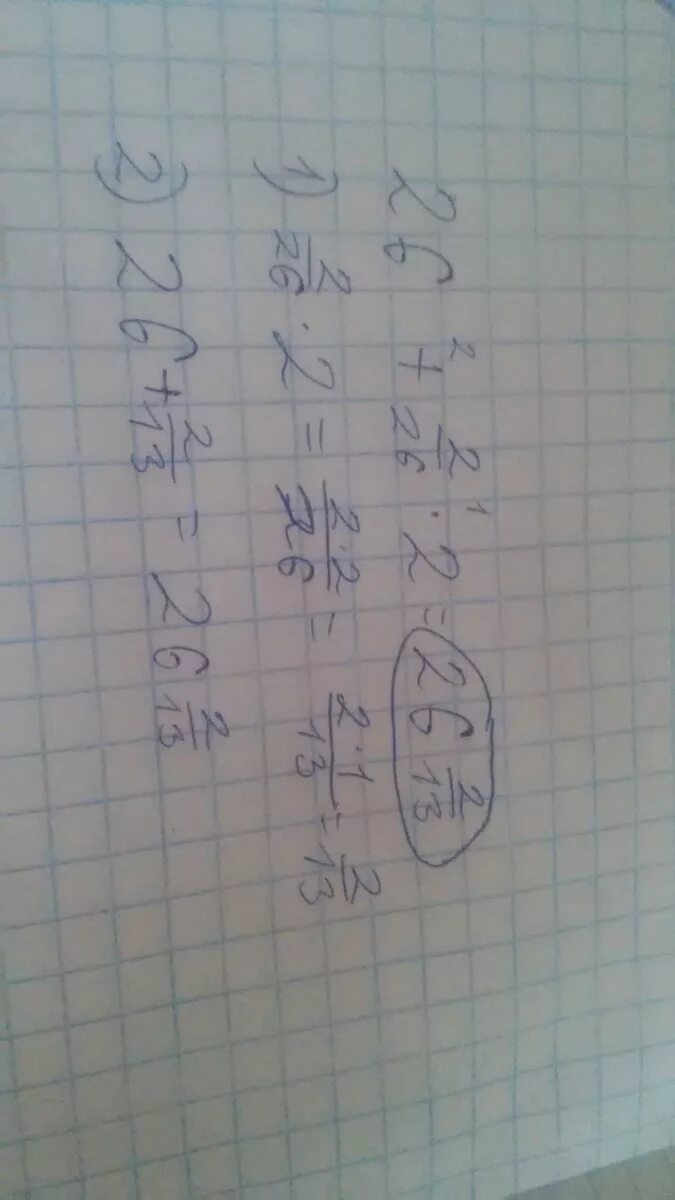 26 +² 2/26 ·¹ 2 = 26 2/13
1) 2/26 · 2 = 2·2/26 = 2·1/13 = 2/13
2) 26 + 2/13 = 26 2/13